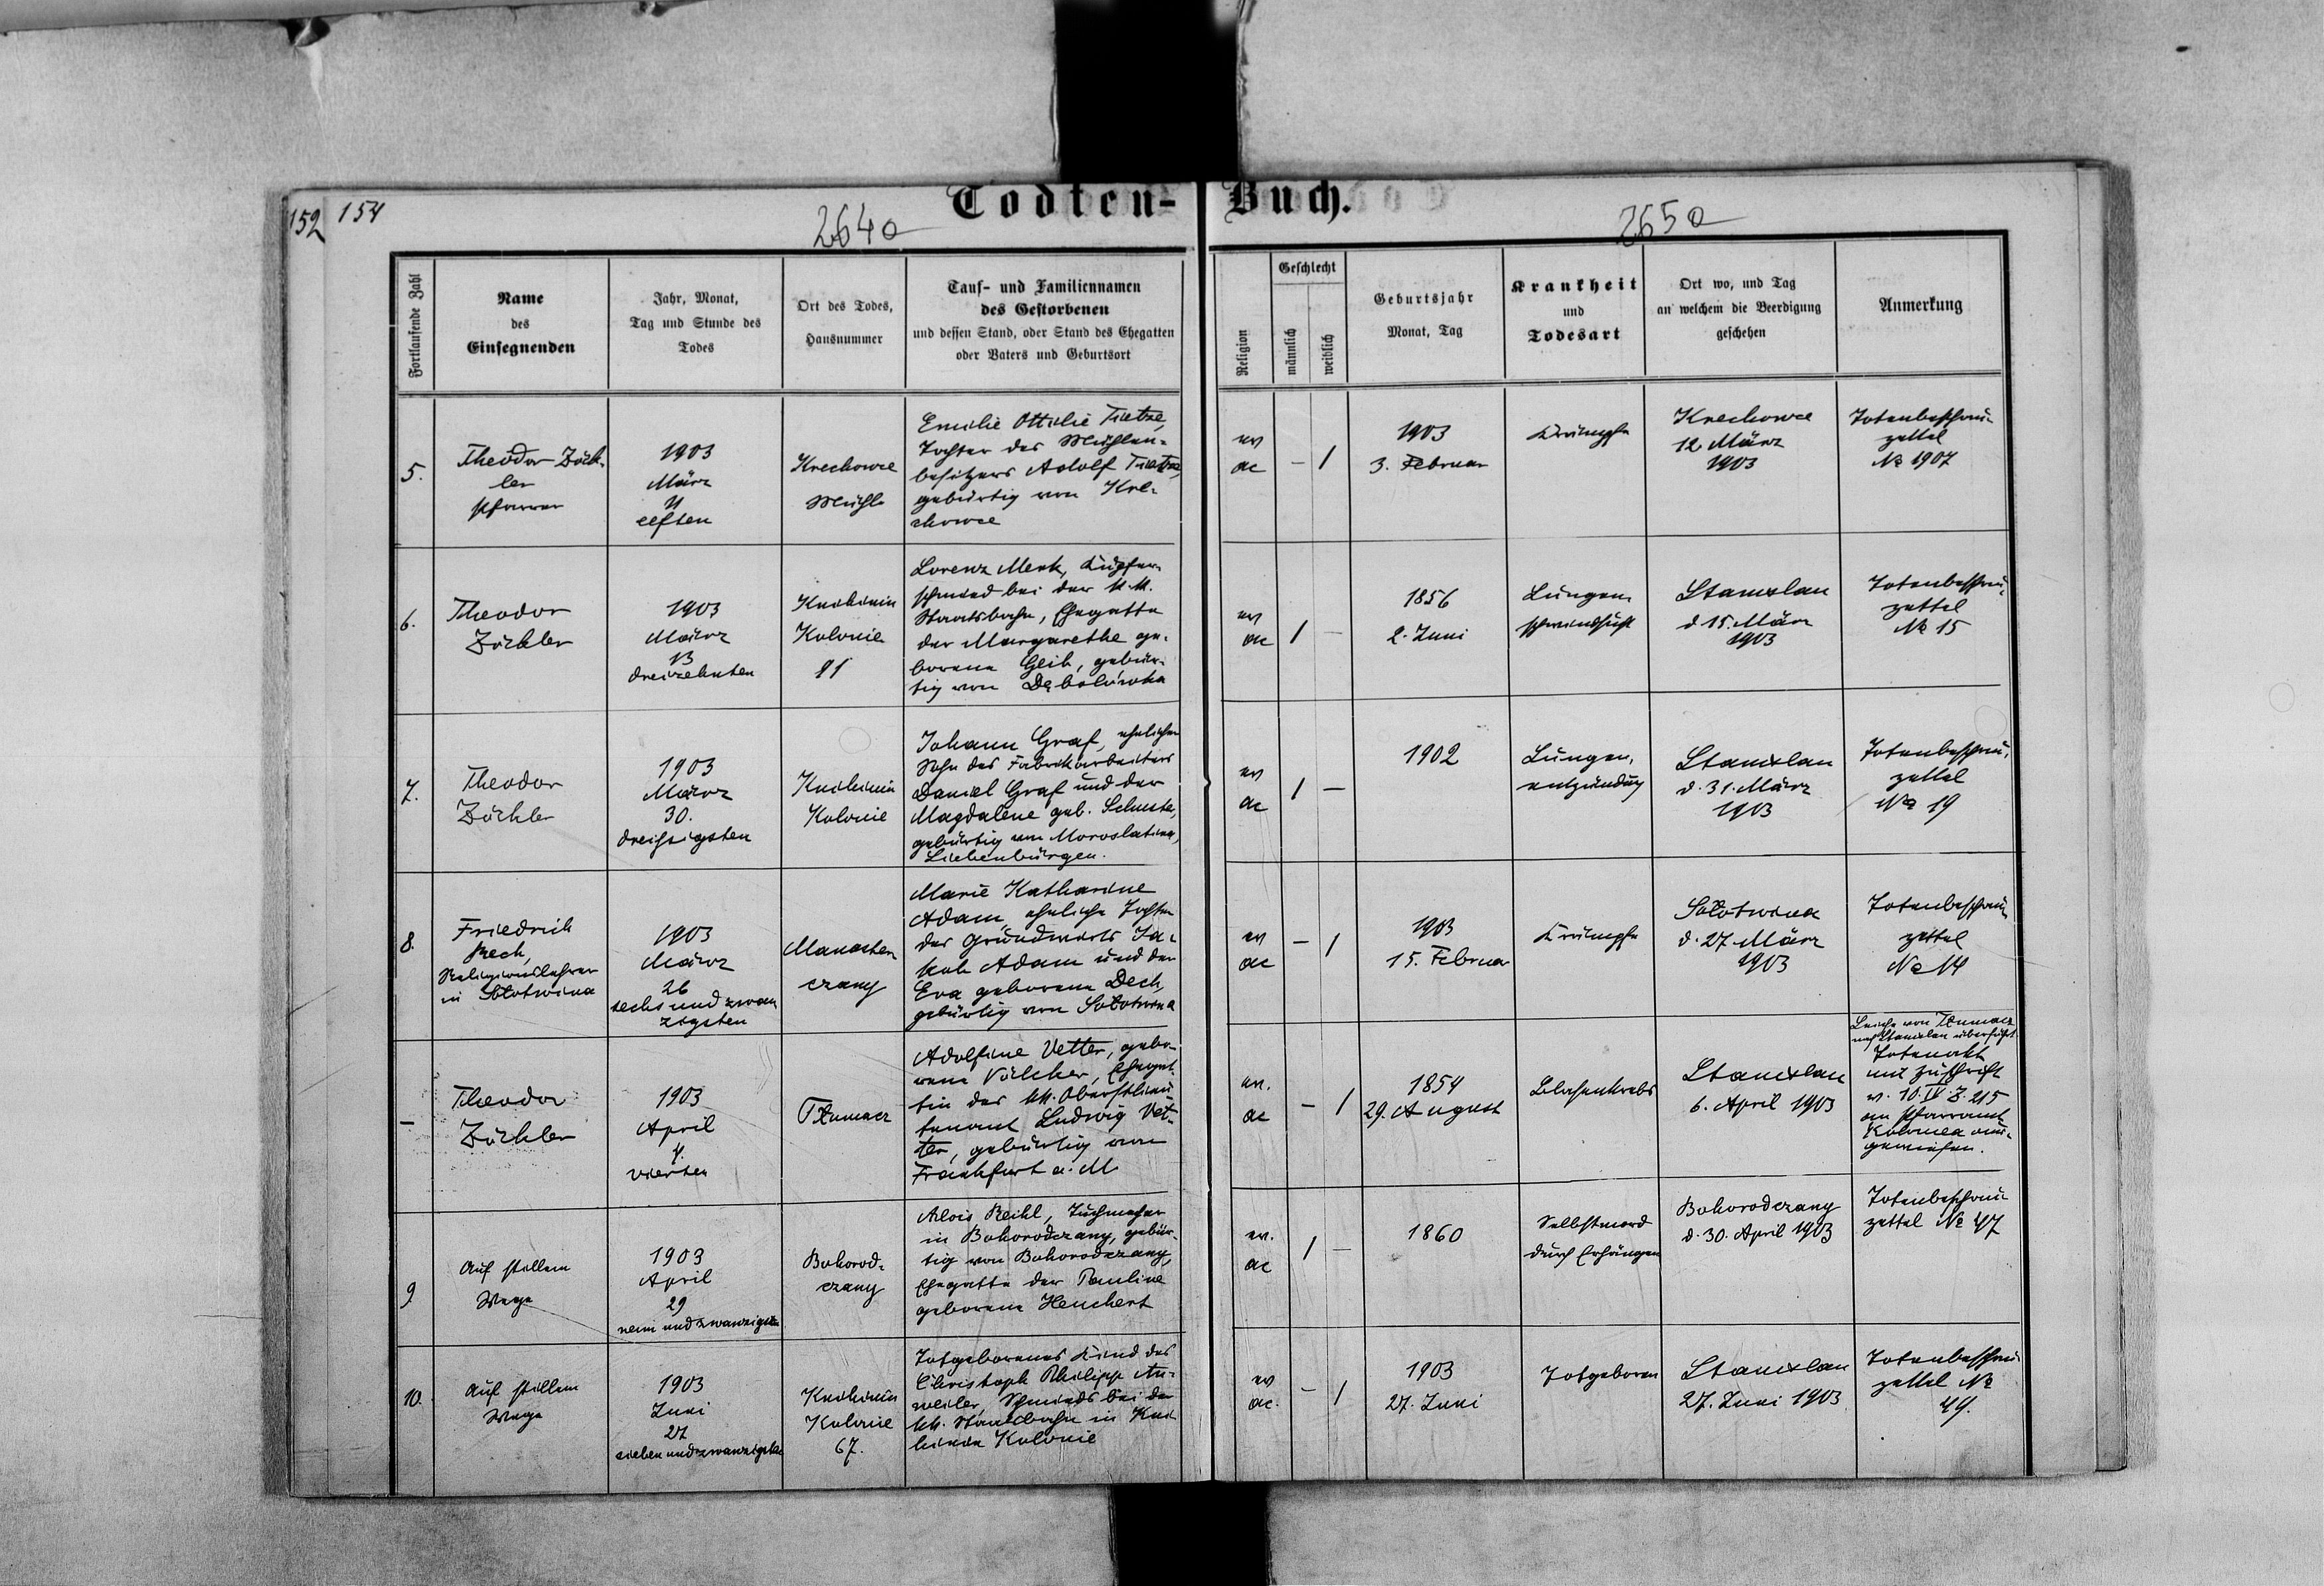 152 154
Todten-Buch.
264a
265a
Fortlaufende Zahl
Name
des
Einsegnenden
Jahr, Monat,
Tag und Stunde des
Todes
Ort des Todes,
Hausnummer
Tauf- und Familiennamen
des Gestorbenen
und dessen Stand, oder Stand des Ehegatten
oder Vaters und Geburtsort
Religion
Geschlecht
männlich
weiblich
Geburtsjahr
Monat, Tag
Krankheit
und
Todesart
Ort wo, und Tag
an welchem die Beerdigung
geschehen
Anmerkung
5.
Theodor Zöck-
ler
Pfarrer
1903
März
11
elften
Krechowce
Mühle
Emilie Ottilie Tietze,
Tochter des Mühlen-
besitzers Adolf Tietze,
gebürtig von Kre-
chowce
ev
ac
– 1
1903
3. Februar
Krämpfe
Krechowce
12 März
1903
Totenbeschau-
zettel
No 1907
6.
Theodor
Zöckler
1903
März
13
dreizehnten
Knihinin
Kolonie
81
Lorenz Merk, Kupfer-
schmied bei der k.k.
Staatsbahn, Ehegatte
der Margarethe ge-
borene Geib, gebür-
tig von Dębolówka
ev
ac
1 –
1856
2. Juni
Lungen-
schwindsucht
Stanislau
d 15. März
1903
Totenbeschau-
zettel
No 15
7.
Theodor
Zöckler
1903
März
30.
dreißigsten
Knihinin
Kolonie
Johann Graf, ehelicher
Sohn des Fabrikarbeiters
Daniel Graf und der
Magdalene geb.
gebürtig von Moroslatina,
Siebenbürgen.
ev
ac
1 –
1902
Lungen-
entzündung
Stanislau
d. 31. März
1903
Totenbeschau-
zettel
No 19
8.
Friedrich
Rech,
Religionslehrer
in Sołotwina
1903
März
26
sechs und zwan
zigsten
Manaster
czany
Marie Katharine
Adam, eheliche Tochter
des Grundwirts Ja-
kob Adam und der
Eva geborene Dech,
gebürtig von Sołotwina
ev
ac
– 1
1903
15. Februar
Krämpfe
Sołotwina
d. 27 März
1903
Totenbeschau-
zettel
No 14
–
Theodor
Zöckler
1903
April
4.
vierten
Tłumacz
Adolfine Vetter, gebo-
rene Völcker, Ehegat-
tin des kk. Oberstlieu-
tenant Ludwig Vet-
ter, gebürtig von
Frankfurt a. M
ev.
ac
– 1
1854
29. August
Blasenkrebs
Stanislau
6. April 1903
Leiche von Tłumacz
nach Stanislau überführt.
Totenakt
mit Zuschrift
v. 10. IV Z. 215
an Pfarramt
Kolomea
9.
Auf stillem
Wege
1903
April
29
neun und zwanzigsten
Bohorod-
czany
Alois Reihl, Tuchmacher
in Bohorodczany, gebür-
tig von Bohorodczany,
Ehegatte der Pauline
geborene Heuchert
ev.
ac
1 –
1860
Selbstmord
durch Erhängen
Bohorodczany
d. 30. April 1903
Totenbeschau-
zettel No 47
10.
Auf stillem
Wege
1903
Juni
27
sieben und zwanzigsten
Knihinin
Kolonie
67.
Totgeborenes Kind des
Christoph Philipp An-
weiler, Schmieds bei der
kk. Staatsbahn in Kni-
hinin Kolonie
ev
ac.
– 1
1903
27. Juni
Totgeboren
Stanislau
27. Juni 1903
Totenbeschau
zettel No
49.